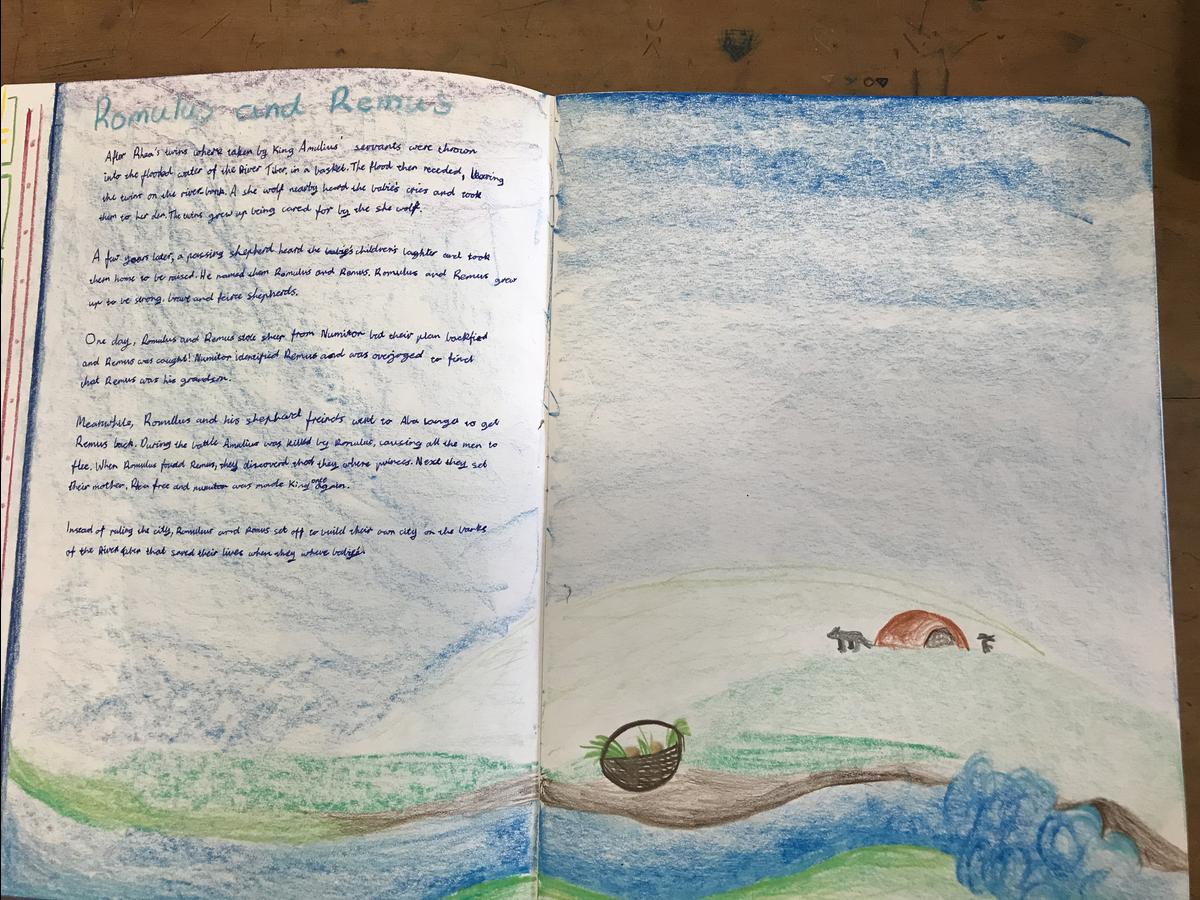 Romulus and Remus
After Rhea's twins where taken by King Amilius' servants were thrown
into the flooded water of the River Tiber, in a basket. The flood then receded, leaving
the twins on the river bank. A she wolf nearby heard the babie's cries and took
them to her den. The twins grew up being cared for by the she wolf.
A few years later, a passing shepherd heard the children's laghter and took
them home to be raised. He named them Romulus and Remus. Romulus and Remus grew
up to be strong, brave and feirce shepherds.
One day, Romulus and Remus stole sheep from Numitor but their plan backfired
and Remus was caught! Numitor identified Remus and was overjoyed to find
that Remus was his grandson.
Meanwhile, Romullus and his shephard freinds went to Alba longa to get
Remus back. During the battle Amulius was killed by Romulus, causing all the men to
flee. When Romulus found Remus, they discoverd that they where princes. Next they set
their mother, Rhea free and numitor was made King once again.
Instead of ruling the city, Romulus and Remus set off to build their own city on the banks
of the River tiber that saved their lives when they where babie's.